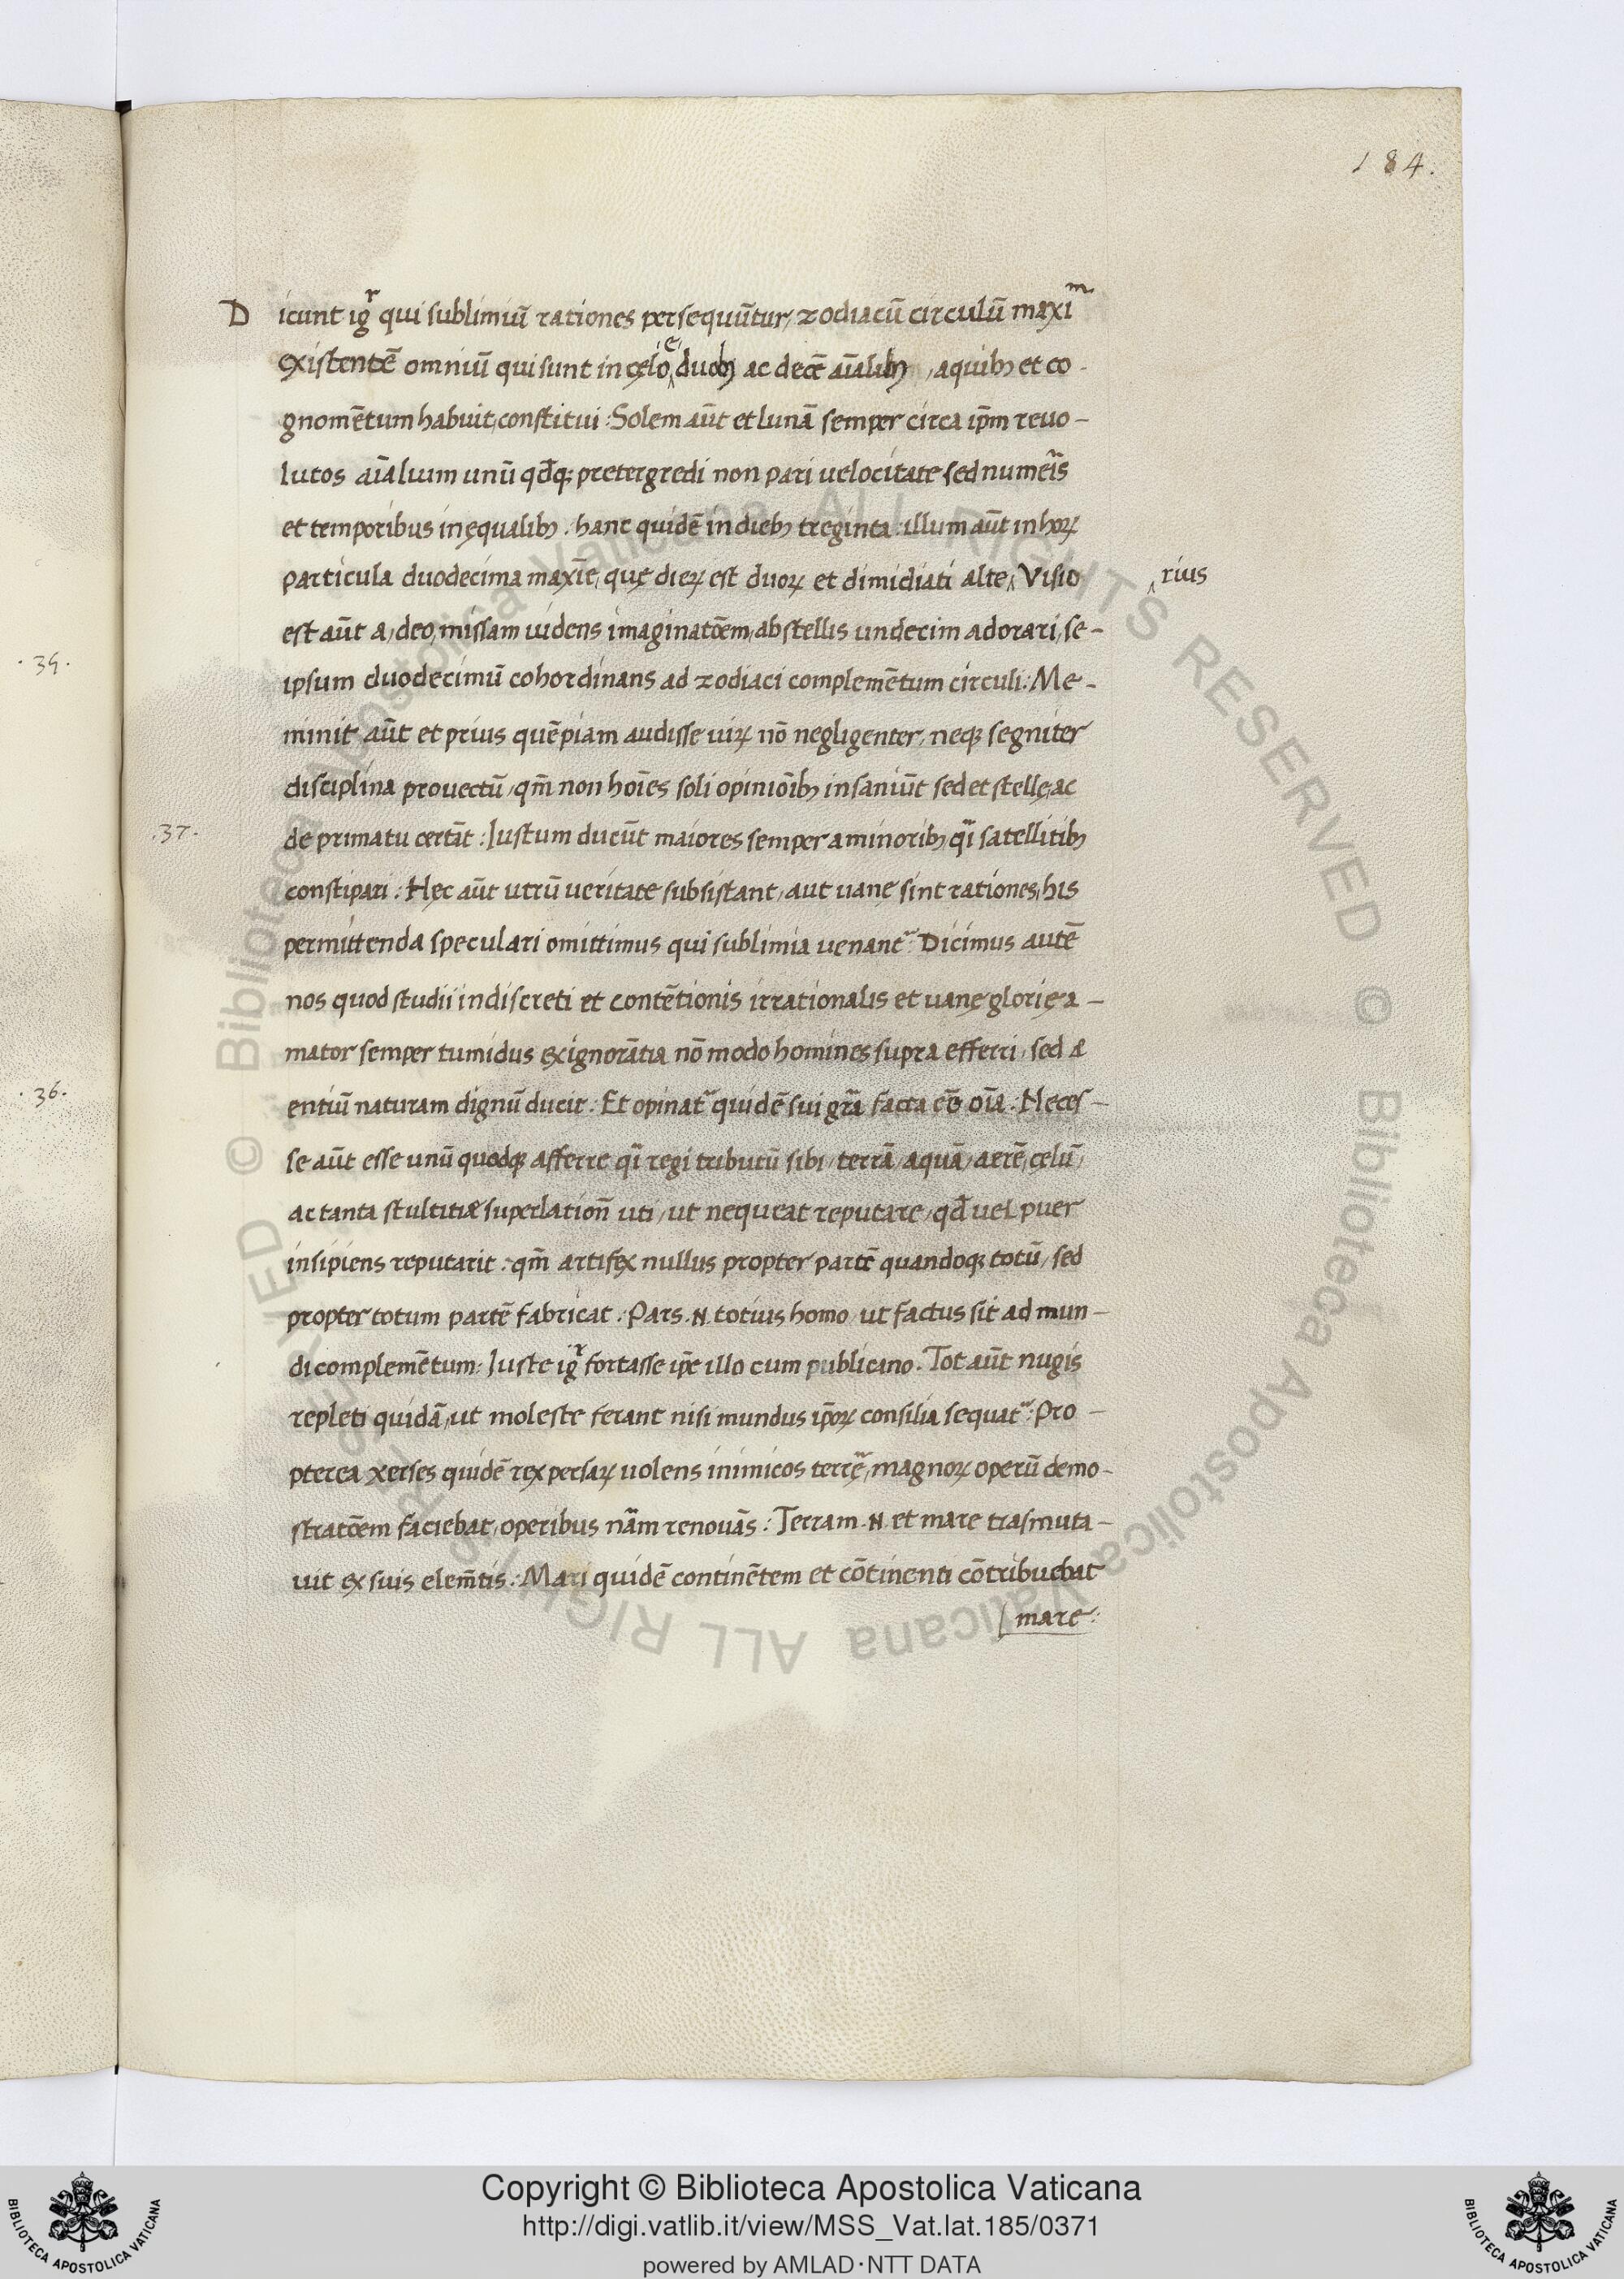 184.
Dicunt igr̃ qui sublimiũ rationes persequũtur, zodiacũ circulũ maxim̃
existentẽ omniũ qui sunt in cęlo, e duobꝫ ac decẽ aĩalibꝫ, aquibꝫ et co-
gnomẽtum habuit, constitui: Solem aũt et lunã semper circa ip̃m reuo-
lutos aĩalium unũ qđqꝫ pretergredi non pari velocitate sed numeris
et temporibus inęqualibꝫ. hanc quidẽ in diebꝫ treginta: illum aũt in horꝝ
particula duodecima maxĩe, quę dierꝝ est duorꝝ et dimidiati alte‸ Visio
‸rius
est aũt a, deo, missam uidens imaginatõem, ab stellis undecim adorari, se-
ipsum duodecimũ cohordinans ad zodiaci complemẽtum circuli: Me-
minit aũt et prius quẽpiam audisse uirꝝ nõ negligenter, neqꝫ segniter
disciplina prouectũ, qm̃ non hoĩes soli opiniõibꝫ insaniũt sed et stellę, ac
.37.
de primatu certãt: Iustum ducũt maiores semper a minoribꝫ q̃i satellitibꝫ
constipari: Hęc aũt utrũ veritate subsistant, aut uanę sint rationes, his
permittenda speculari omittimus qui sublimia uenant᷑: Dicimus autẽ
nos quod studii indiscreti et contẽtionis irrationalis et uanę glorię a-
mator semper tumidus ex ignorãtia nõ modo homines supra efferri, sed æ
entiũ naturam dignũ ducit: Et opinat᷑ quidẽ sui gr̃a facta eẽ oĩa: Neces-
se aũt esse unũ quodqꝫ afferre q̃i regi tributũ sibi, terrã, aquã, aerẽ, cęlũ,
ac tanta stultitiæ superlation̄ uti, ut nequeat reputare, qđ vel puer
insipiens reputarit: qm̃ artifex nullus propter partẽ quandoqꝫ totũ, sed
propter totum partẽ fabricat: Pars .N. totius homo, ut factus sit ad mun-
di complemẽtum: Iuste igr̃ fortasse ip̃e illo cum publicano. Tot aũt nugis
repleti quidã, ut moleste ferant nisi mundus ip̃orꝝ consilia sequat᷑: Pro-
pterea xerses quidẽ rex persarꝝ uolens inimicos terrẽ, magnorꝝ operũ demo-
stratõem faciebat, operibus nãm renouãs: Terram .N. et mare trasmuta-
uit ex suis elem̃tis: Mari quidẽ continẽtem et cõtinenti cõtribuebat
mare:
.35.
.36.
Copyright © Biblioteca Apostolica Vaticana
http://digi.vatlib.it/view/MSS_Vat.lat.185/0371
powered by AMLAD·NTT DATA
BIBLIOTECA APOSTOLICA VATICANA
BIBLIOTECA APOSTOLICA VATICANA
© Biblioteca Apostolica Vaticana ALL RIGHTS RESERVED
© Biblioteca Apostolica Vaticana ALL RIGHTS RESERVED